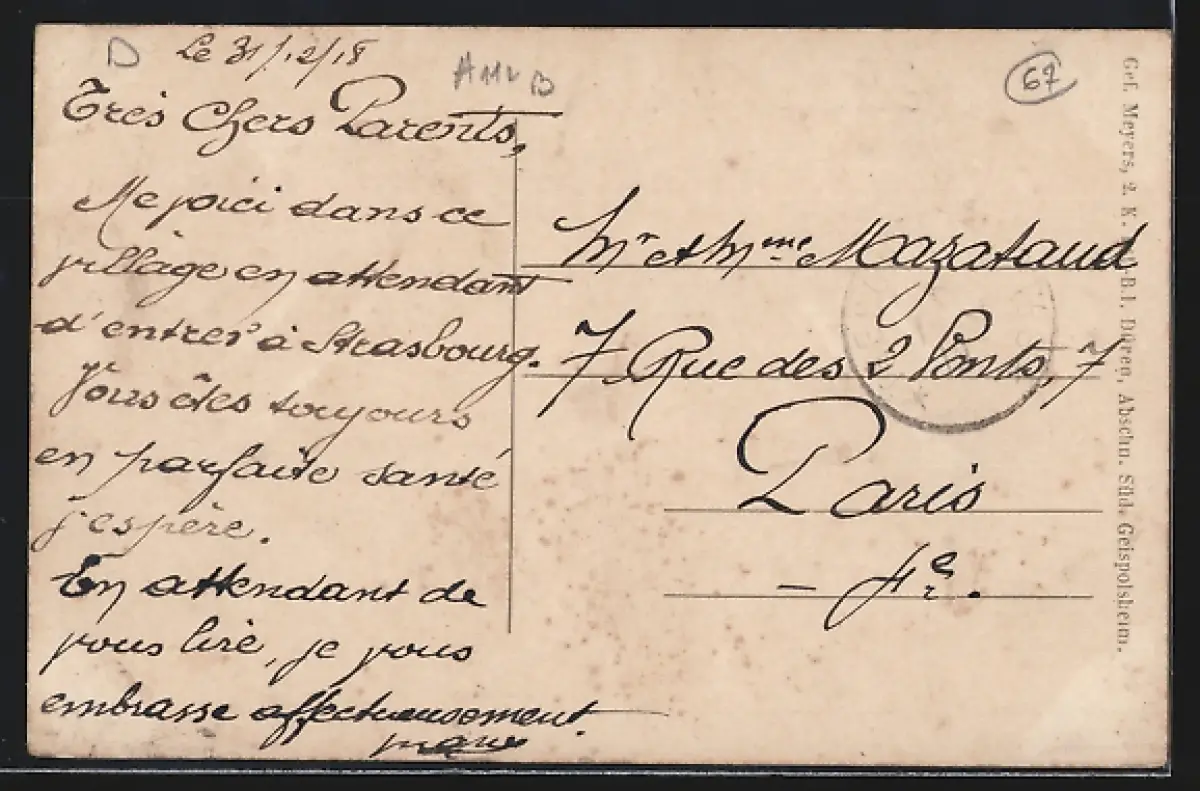 D
Le 31/12/18
67
Très Chers Parents,
Me voici dans ce
village en attendant
d'entrer à Strasbourg.
Vous êtes toujours
en parfaite santé
j'espère.
En attendant de
vous lire, je vous
embrasse affectueusement.
Mr et Mme Mazataud
7 Rue des 2 Ponts, 7
Paris
- 4e.
Gef. Meyers, 2. K. B.I. Düren, Abschn. Süd. Geispolsheim.